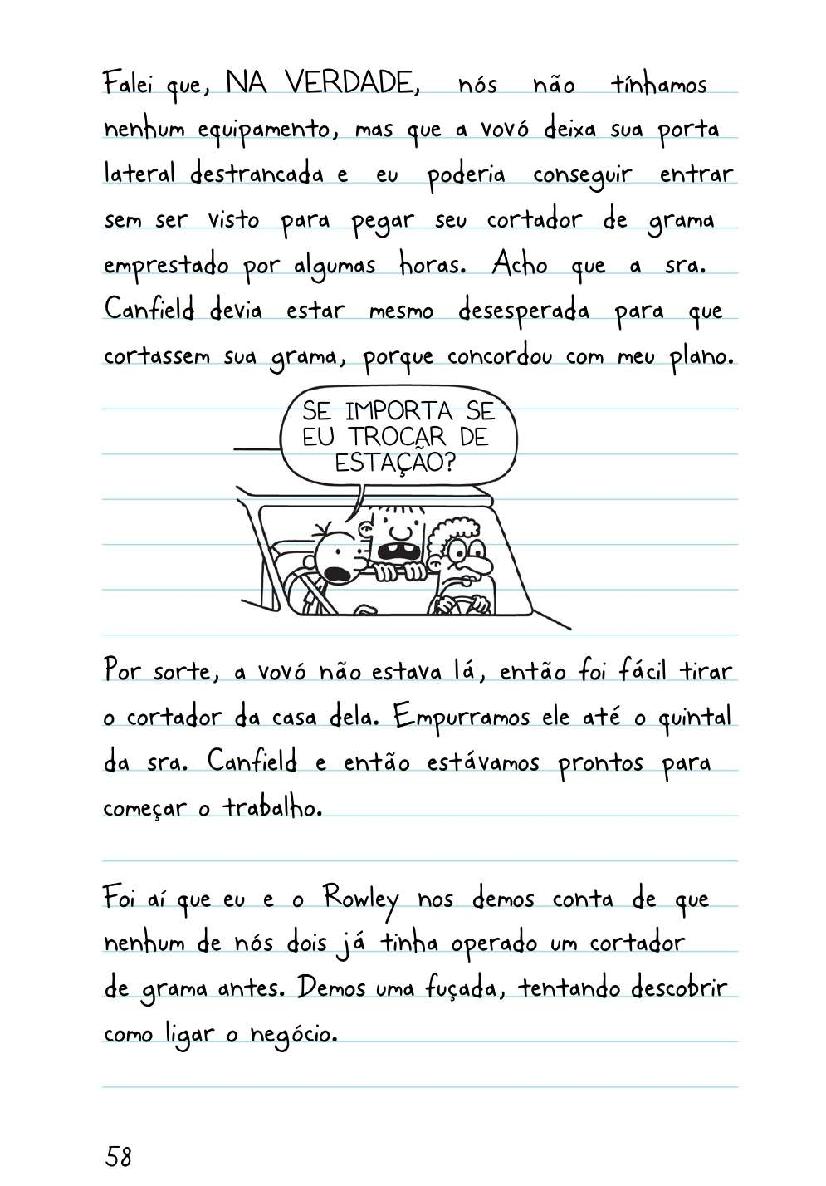 Falei que, NA VERDADE, nós não tínhamos
nenhum equipamento, mas que a vovó deixa sua porta
lateral destrancada e eu poderia conseguir entrar
sem ser visto para pegar seu cortador de grama
emprestado por algumas horas. Acho que a sra.
Canfield devia estar mesmo desesperada para que
cortassem sua grama, porque concordou com meu plano.
SE IMPORTA SE
EU TROCAR DE
ESTAÇÃO?
Por sorte, a vovó não estava lá, então foi fácil tirar
o cortador da casa dela. Empurramos ele até o quintal
da sra. Canfield e então estávamos prontos para
começar o trabalho.
Foi aí que eu e o Rowley nos demos conta de que
nenhum de nós dois já tinha operado um cortador
de grama antes. Demos uma fuçada, tentando descobrir
como ligar o negócio.
58